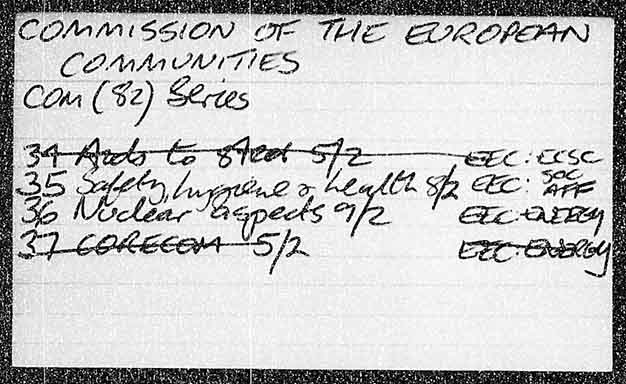 COMMISSION OF THE EUROPEAN
COMMUNITIES
COM (82) Series
34 Aids to Steel 5/2 EEC: ECSC
35 Safety hygiene & health 8/2 EEC: SOC AFF
36 Nuclear aspects 9/2 EEC: ENERGY
37 CORECOM 5/2 EEC: ENERGY